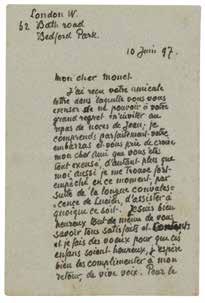 London W.
62 Bath road
Bedford Park.
10 Juin 97.
Mon cher Monet.
J'ai reçu votre amicale
lettre dans laquelle vous vous
excusez de ne pouvoir à votre
grand regret m'inviter au
repas de noces de Jean; je
comprends parfaitement votre
embarras et vous prie de croire
mon cher ami que vous êtes
tout excusé, d'autant plus que
moi aussi je me trouve fort
empêché en ce moment, par
suite de la longue convales-
cence de Lucien, d'assister à
quoique ce soit. Je suis bien
heureux tout de même de vous
savoir tous satisfaits et contents
et je fais des voeux pour que ces
enfans soient heureux, j'espère
bien les complimenter à mon
retour, de vive voix. Pour le